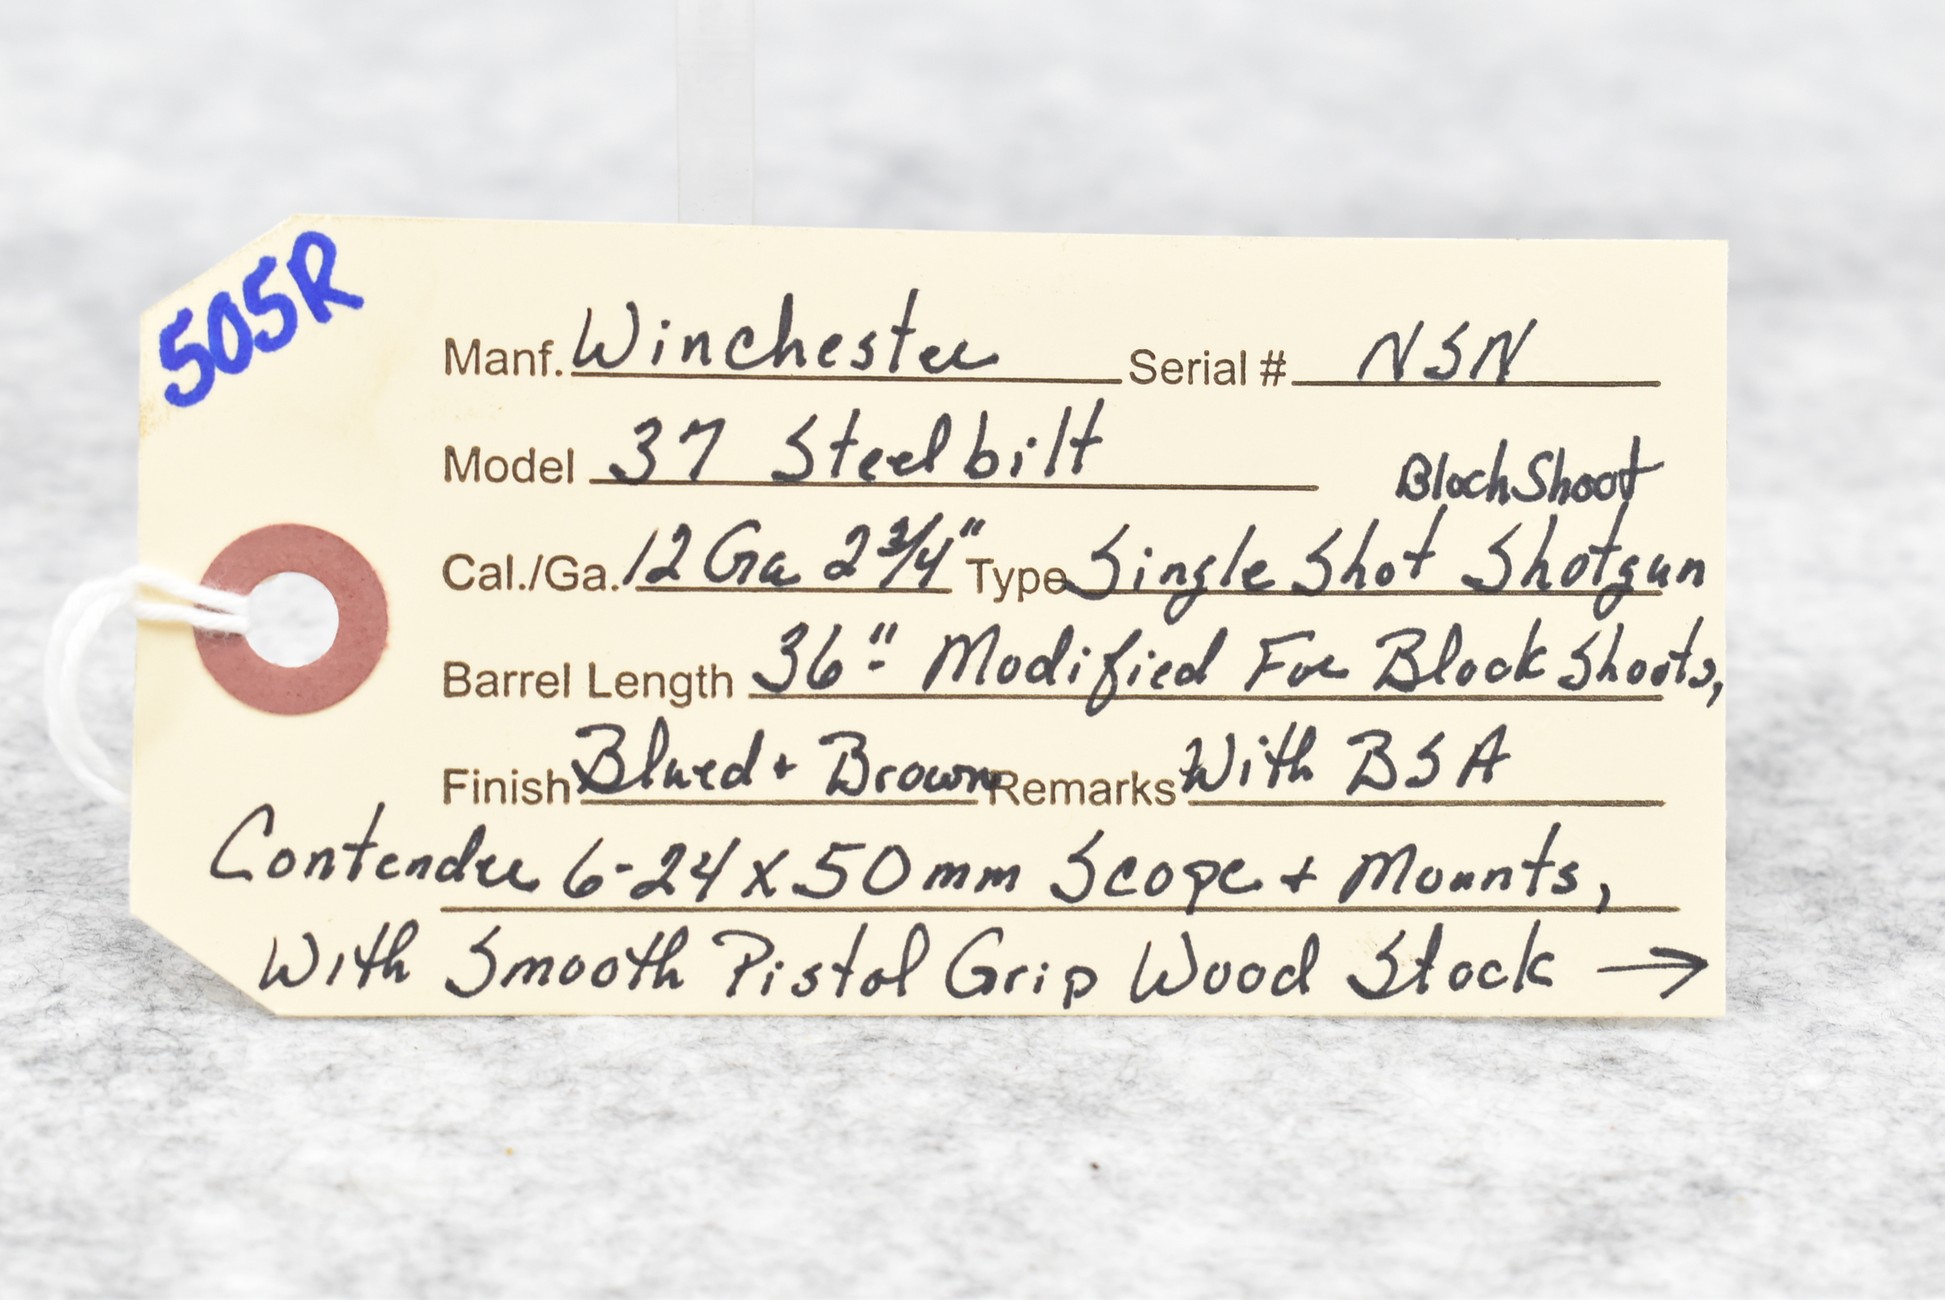 505R
Manf. Winchester Serial # NSN
Model 37 Steelbilt
Block Shoot
Cal./Ga. 12 Ga 2 3/4" Type Single Shot Shotgun
Barrel Length 36" Modified For Block Shoots,
Finish Blued + Brown Remarks With BSA
Contender 6-24x50mm Scope + Mounts,
With Smooth Pistol Grip Wood Stock →